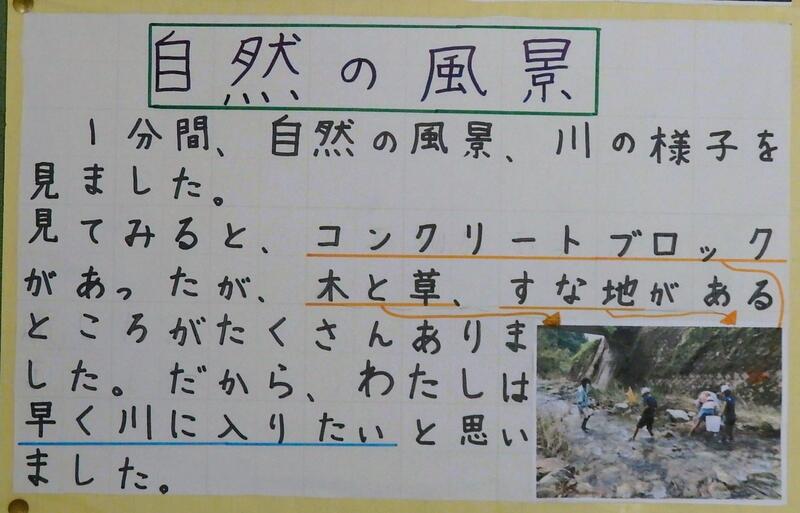 自然の風景
1分間、自然の風景、川の様子を
見ました。
見てみると、コンクリートブロック
があったが、木と草、すな地がある
ところがたくさんありま
した。だから、わたしは
早く川に入りたいと思い
ました。